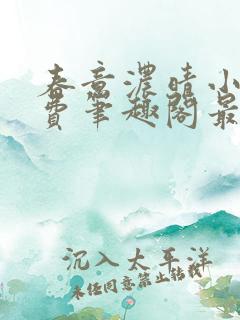 春意濃晴小
費筆趣閣最
沉入太平洋
未经同意禁止转载